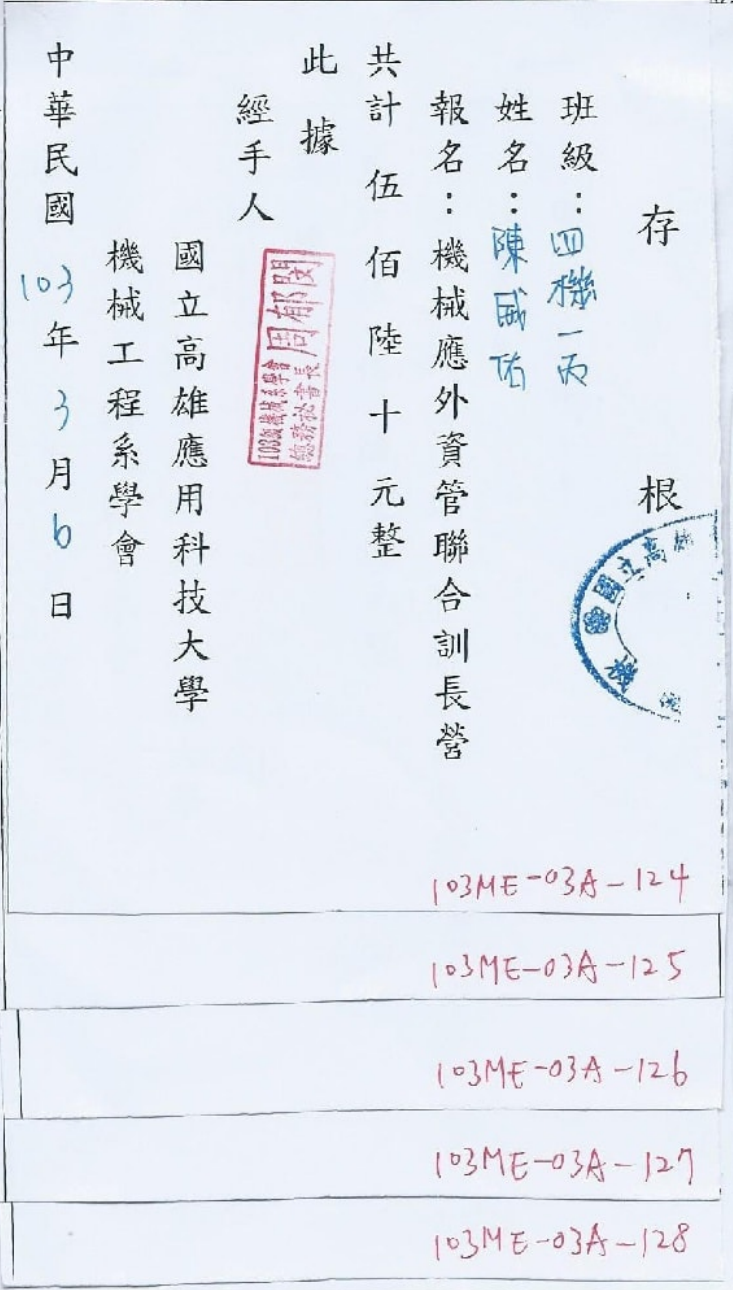 存根
班級：四機一丙
姓名：陳威佑
報名：機械應外資管聯合訓長營
共計 伍佰陸十元整
此據
經手人
103級機械系學會
總務祕書長 周郁閔
國立高雄應用科技大學
機械工程系學會
中華民國103年3月6日
國立高雄
103ME-03A-124
103ME-03A-125
103ME-03A-126
103ME-03A-127
103ME-03A-128